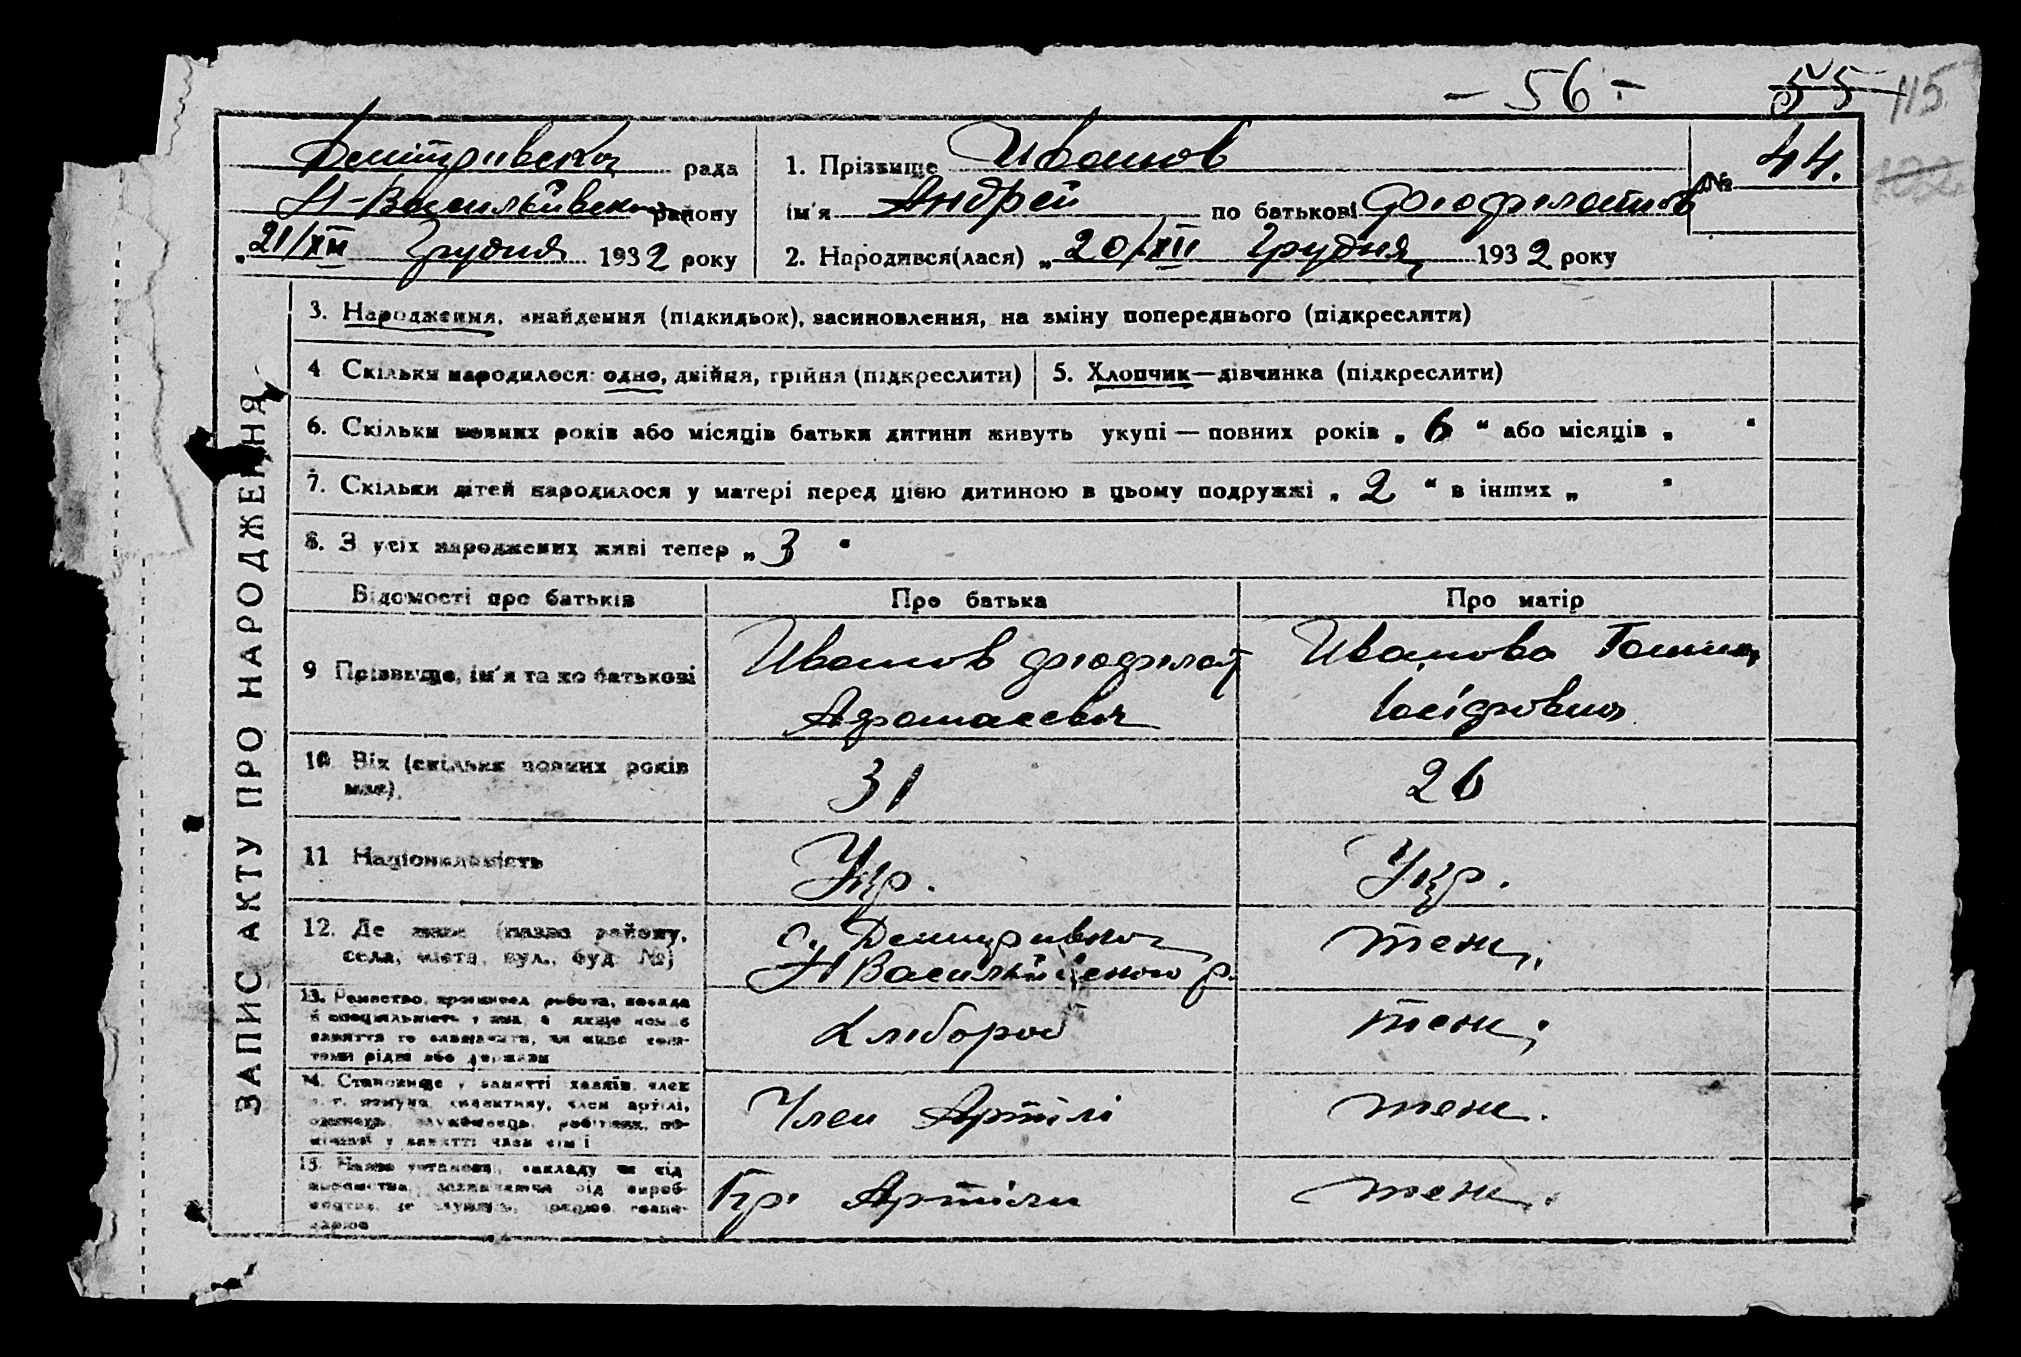 - 56 - 55 115
Дмитрівська рада
Н-Васильївського району
„21/XII Грудня 1932 року
1. Прізвище Иванов
ім'я Андрей по батькові Фіофилатов
№ 44.
2. Народився(лася) „20/XII Грудня 1932 року
ЗАПИС АКТУ ПРО НАРОДЖЕННЯ
3. Народження, знайдення (підкидьок), засиновлення, на зміну попереднього (підкреслити)
4 Скільки народилося: одно, двійня, трійня (підкреслити) 5. Хлопчик—дівчинка (підкреслити)
6. Скільки повних років або місяців батьки дитини живуть укупі — повних років „ 6 “ або місяців „ “
7. Скільки дітей народилося у матері перед цією дитиною в цьому подружжі „ 2 “ в інших „ “
8. З усіх народжених живі тепер „ 3 “
Відомості про батьків Про батька Про матір
9 Прізвище, ім'я та по батькові Иванов Фіофилат Иванова Ганна
Афанасевич Ісідровна
10 Вік (скільки повних років має) 31 26
11 Національність Укр. Укр.
12. Де живе (назва району, села, міста, вул., буд. №) с. Дмитрівка теж
Н Васильївского р.
13. Ремество, промисел, робота, посада й спеціяльність Хлібороб теж
14. Становище у занятті Член Артілі теж.
15. Назва установи, закладу Артіли теж.